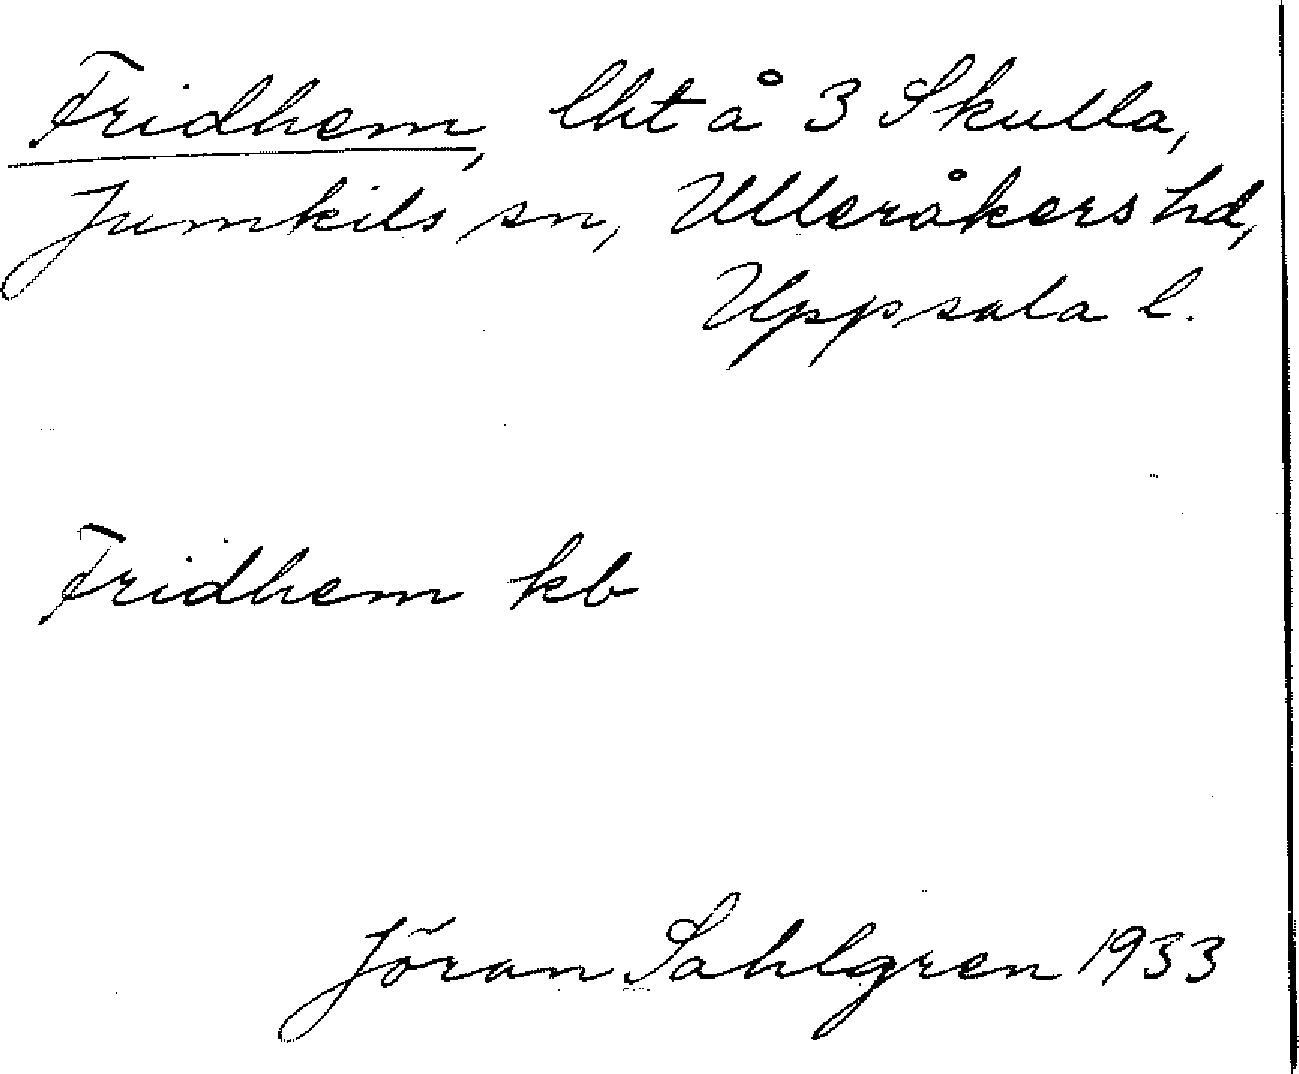 Fridhem, lht å 3 Skulla,
Jumkils sn, Ulleråkers hd,
Uppsala l.
Fridhem kb
Jöran Sahlgren 1933